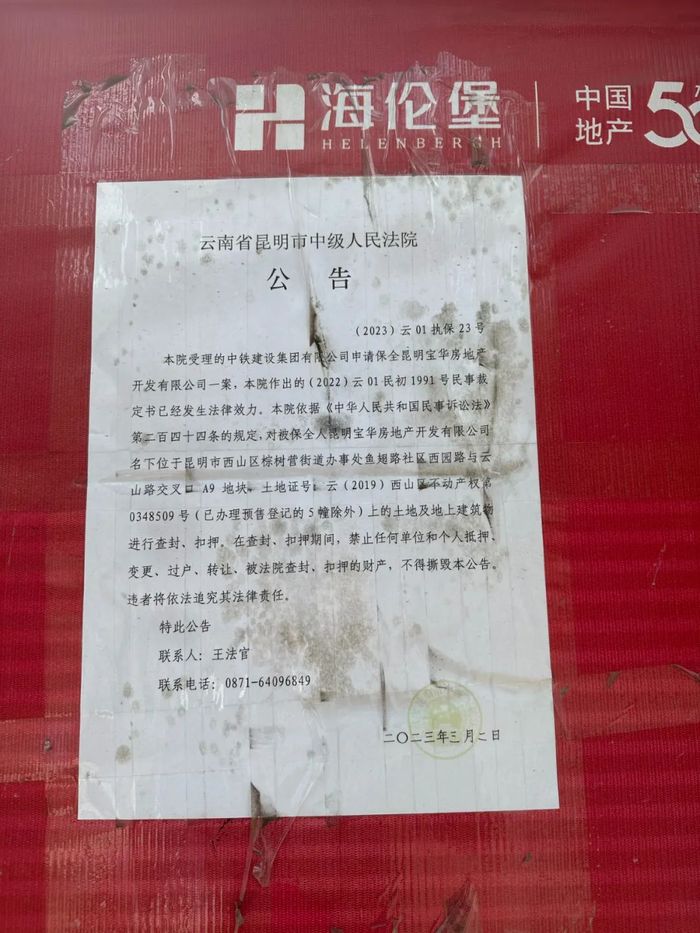 海伦堡
HELENBERGH
中国
地产
5
云南省昆明市中级人民法院
公 告
(2023)云01执保23号
本院受理的中铁建设集团有限公司申请保全昆明宝华房地产
开发有限公司一案，本院作出的(2022)云01民初1991号民事裁
定书已经发生法律效力。本院依据《中华人民共和国民事诉讼法》
第二百四十四条的规定，对被保全人昆明宝华房地产开发有限公司
名下位于昆明市西山区棕树营街道办事处鱼翅路社区西园路与云
山路交叉口 A9 地块，土地证号：云(2019)西山区不动产权第
0348509号(已办理预售登记的5幢除外)上的土地及地上建筑物
进行查封、扣押。在查封、扣押期间，禁止任何单位和个人抵押、
变更、过户、转让、被法院查封，扣押的财产，不得撕毁本公告。
违者将依法追究其法律责任。
特此公告
联系人：王法官
联系电话：0871-64096849
二〇二三年三月二日